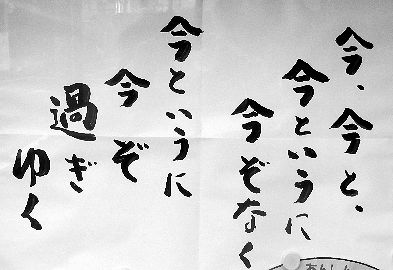 今、今と、
今というに
今ぞなく
今というに
今ぞ
過ぎ
ゆく